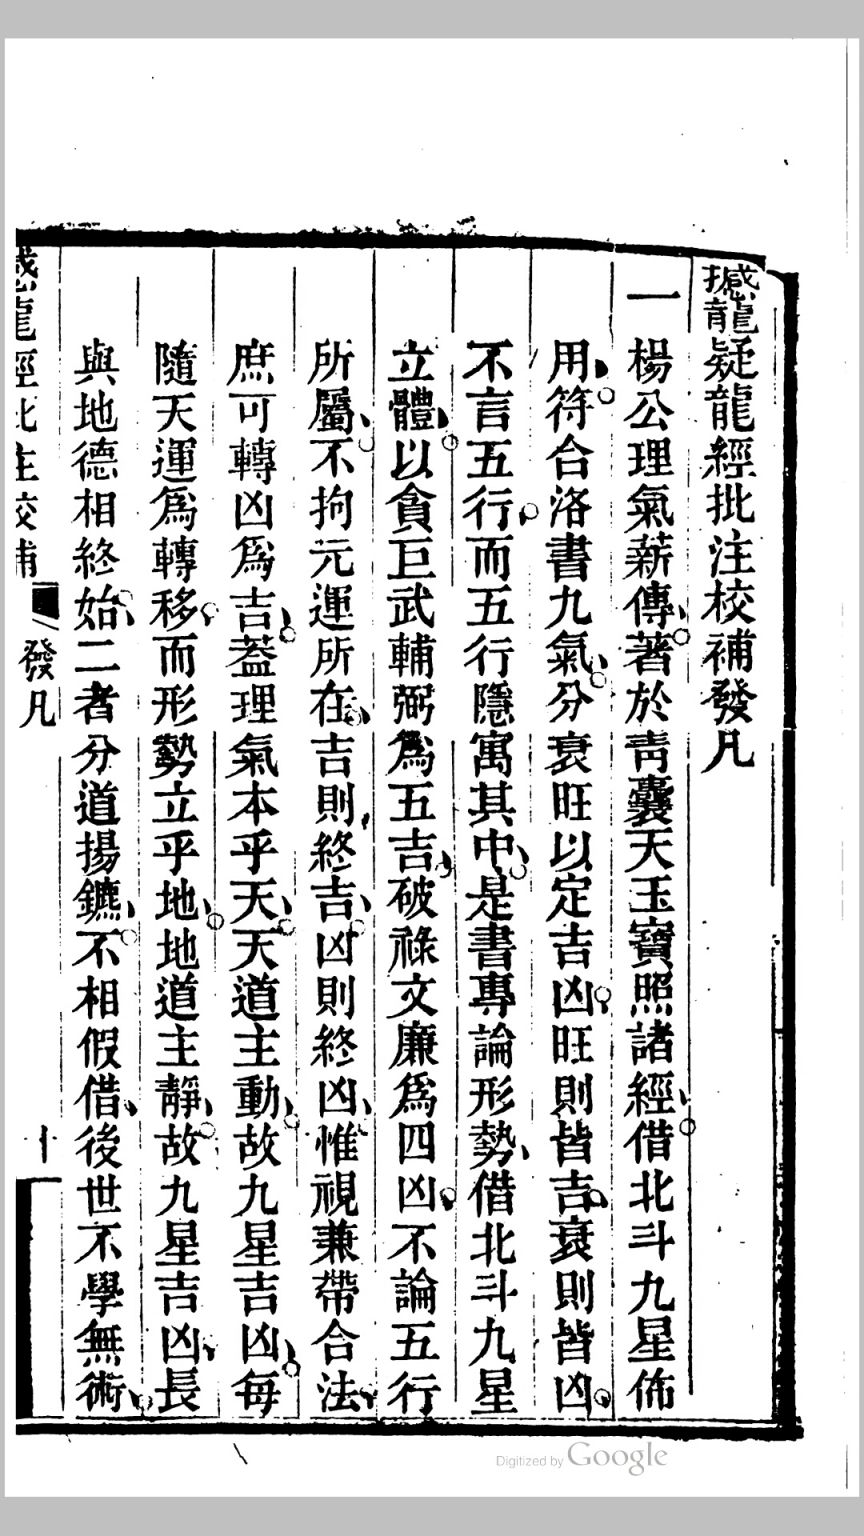 撼龍疑龍經批注校補發凡
一楊公理氣薪傳著於靑囊天玉寶照諸經借北斗九星佈
用符合洛書九氣分衰旺以定吉凶旺則皆吉衰則皆凶
不言五行而五行隱寓其中是書專論形勢借北斗九星
立體以貪巨武輔弼爲五吉破祿文廉爲四凶不論五行
所屬不拘元運所在吉則終吉凶則終凶惟視兼帶合法
庶可轉凶爲吉葢理氣本乎天天道主動故九星吉凶每
隨天運爲轉移而形勢立乎地地道主靜故九星吉凶長
與地德相終始二者分道揚鑣不相假借後世不學無術
撼龍經批注校補 發凡 十
Digitized by Google